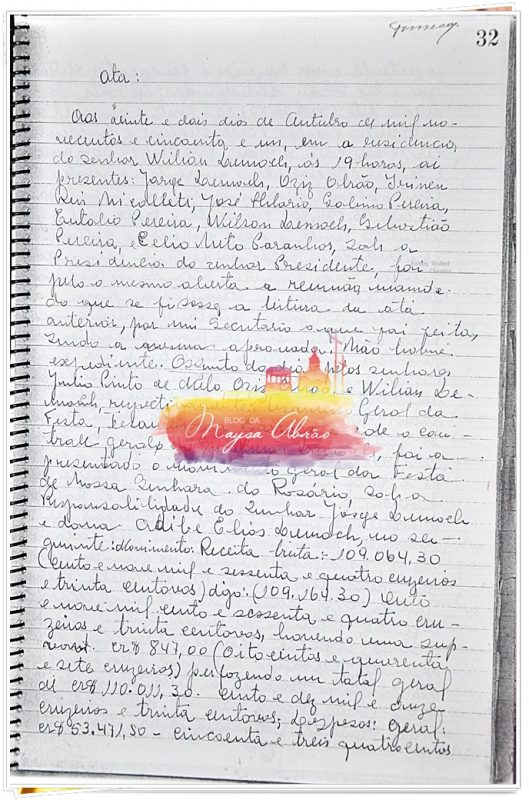 32
Ata:
Aos vinte e dois dias de Outubro de mil no-
vecentos e cincoenta e um, em a residencia,
do senhor Wilian Lemoch, ás 19 horas, ai
presentes: Jorge Lemoch, Oziz Abrão, Irineu
Reis Micalleti, José Hilario, Galeno Pereira,
Eutalio Pereira, Wilson Lemoch, Sebastião
Pereira, e Celio Neto Paranhos, sob a
Presidencia do senhor Presidente, foi
pelo o mesmo aberta a reunião, mando-
do que se fizesse a leitura da ata
anterior, por mim Secretario o que foi feita,
sendo a mesma aprovada. Não houve
expediente. Assunto do dia: pelos senhores
Julio Pinto de Mélo, e Wilian Le-
moch, Geral da
Festa, de o con-
BLOG DA
Maysa Abrão
geral foi a
presentado o movimento Geral da Festa
de Nossa Senhora do Rosário, Sob a
Responsabilidade do Senhor Jorge Lemoch
e dona Adibe Elias Lemoch, no se-
guinte: Movimento: Receita bruta: 109.064,30
(cento e nove mil e sessenta e quatro cruzeiros
e trinta centavos) digo: (109,164.30) cento
e nove mil cento e sessenta e quatro cru-
zeiros e trinta centavos, havendo uma
cr$ 847,00 (Oitocintos e quarenta
e sete cruzeiros) perfazendo um total geral
de cr$ 110.011,30. cento e dez mil e onze
cruzeiros e trinta centavos, Despesas: Geral:
cr$ 53.471,50 - cincoenta e treis quatrocentos